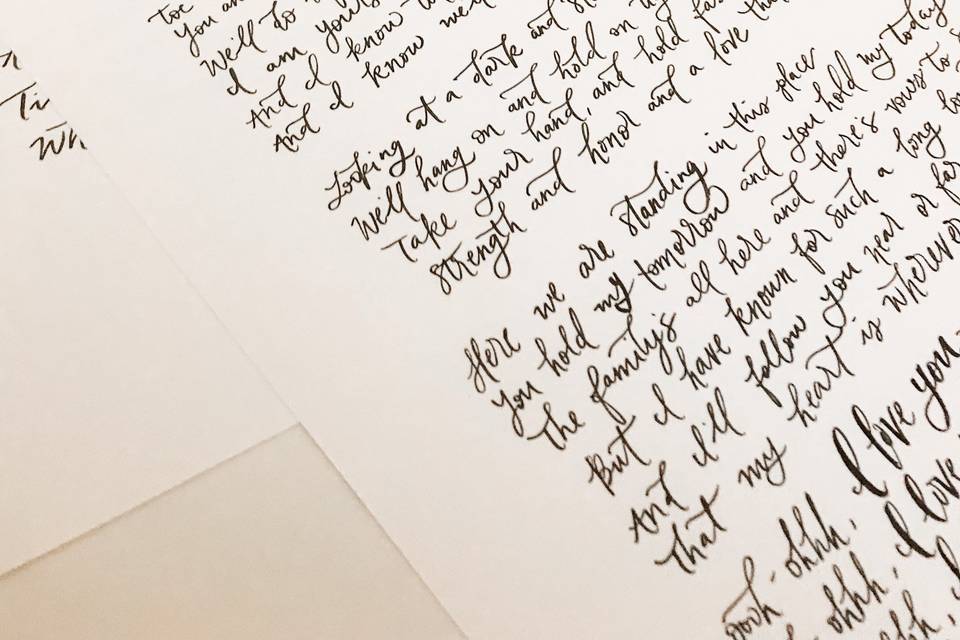 Ti
Wh
Toe
You an
We'll to
I am yours
And I know
And I know we
Looking at a dark and
We'll hang on and hold on
Take your hand, and hold
Strength and honor and a love
Here we are standing in this place
You hold my tomorrow and you hold my today
The family's all here and there's vows to
But I have known for such a long
And I'll follow you near or far
That my heart is wherever
oooh, ohhh, I love you
ohhh, I love